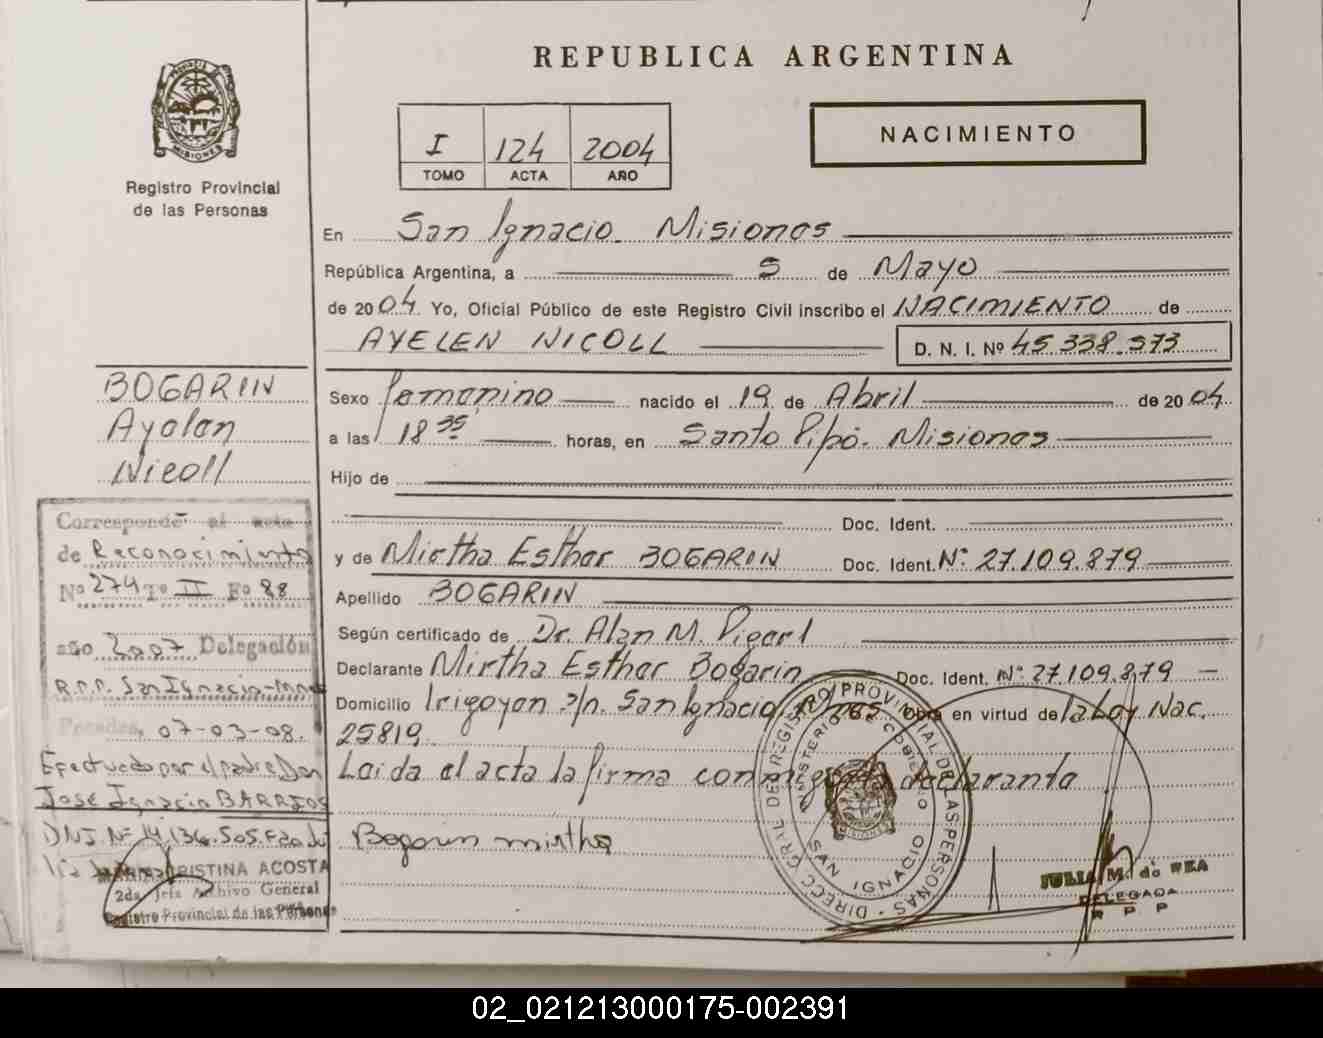 REPUBLICA ARGENTINA
PROVINCIA DE MISIONES
Registro Provincial
de las Personas
I 124 2004
TOMO ACTA AÑO
NACIMIENTO
En San Ignacio. Misiones
República Argentina, a 5 de Mayo
de 2004 Yo, Oficial Público de este Registro Civil inscribo el NACIMIENTO de
AYELEN NICOLL D. N. I. Nº 45.338.573
BOGARIN
Ayelen
Nicoll
Sexo femenino nacido el 19 de Abril de 2004
a las 18 35 horas, en Santo Pipó. Misiones
Hijo de
Doc. Ident.
y de Mirtha Esther BOGARIN Doc. Ident. Nº 27.109.879
Apellido BOGARIN
Según certificado de Dr. Alan M.
Declarante Mirtha Esther Bogarin Doc. Ident. Nº 27.109.879
Domicilio Irigoyen s/n. San Ignacio Mnes Obra en virtud de la Ley Nac.
25819.
Leida el acta la firma conmigo la declarante
Bogarin mirtha
Corresponde al acta
de Reconocimiento
Nº 274 Tº II Fº 88
año 2007 Delegación
R.P.P. San Ignacio-Mnes
Posadas, 07-03-08.
Efectuado por el padre Don
José Ignacio BARRIOS
DNI. Nº 14.136.505.
CRISTINA ACOSTA
2da. Jefa Archivo General
Registro Provincial de las Personas
DIRECC. GRAL. DE REGISTRO PROVINCIAL DE LAS PERSONAS
MINISTERIO DE GOBIERNO
SAN IGNACIO
JULIA M. de REA
DELEGADA
R P P
02_021213000175-002391